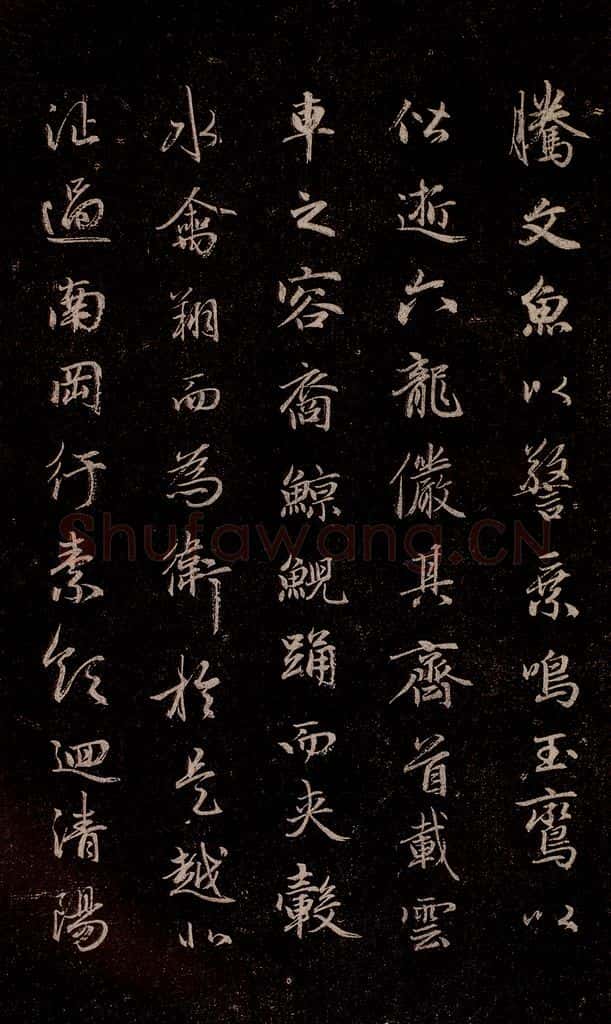 騰文魚以警乗鳴玉鸞以
偕逝六龍儼其齊首載雲
車之容裔鯨鯢踊而夾轂
水禽翔而為衛於是越北
沚過南岡紆素領迴清陽
Shufawang.CN